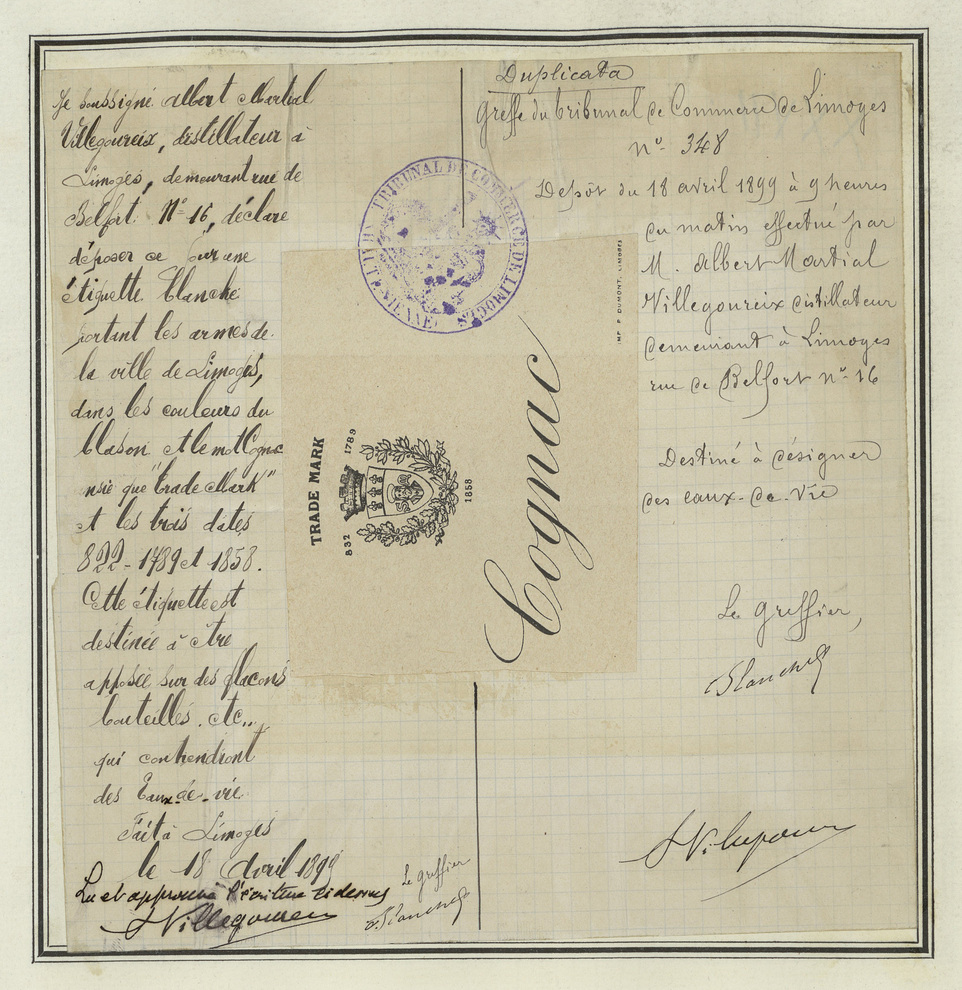 Je soussigné Albert Martial
Villegoureix, distillateur à
Limoges, demeurant rue de
Belfort N° 16, déclare
déposer ce jour une
étiquette blanche
portant les armes de
la ville de Limoges,
dans les couleurs du
blason et le mot Cognac
nsi que "trade Mark"
et les trois dates
832 - 1789 et 1858.
Cette étiquette est
destinée à être
apposée sur des flacons
bouteilles. etc..
qui contiendront
des Eaux-de-vie
Fait à Limoges
le 18 Avril 1899
Lu et approuvé l'écriture ci dessus
AVillegoureix
Le greffier
Blanchet
TRIBUNAL DE COMMERCE DE LIMOGES
HAUTE-VIENNE
TRADE MARK
832
1789
1858
Cognac
IMP. P. DUMONT, LIMOGES
Duplicata
Greffe du tribunal de Commerce de Limoges
n° 348
Dépôt du 18 avril 1899 à 9 heures
du matin effectué par
M. Albert Martial
Villegoureix distillateur
demeurant à Limoges
rue de Belfort n° 16
Destiné à désigner
des eaux-de-vie
Le Greffier,
Blanchet